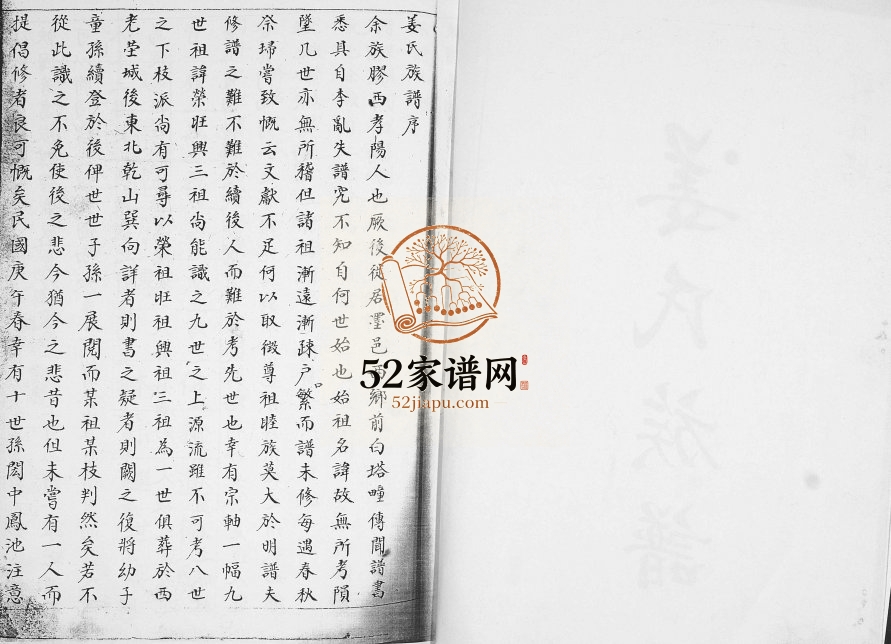 姜氏族譜序
余族膠西孝陽人也厥後徙居墨邑西鄉前白塔疃傳聞譜書
悉具自李亂失譜究不知自何世始也始祖名諱故無所考隕
墜几世亦無所稽但諸祖漸遠漸疎戶繁而譜未修每遇春秋
祭埽嘗致慨云文獻不足何以取徵尊祖睦族莫大於明譜夫
修譜之難不難於續後人而難於考先世也幸有宗軸一幅九
世祖諱榮旺興三祖尚能識之九世之上源流雖不可考八世
之下枝派尚有可尋以榮祖旺祖興祖三祖為一世俱葬於西
老塋城後東北乾山巽向詳者則書之疑者則闕之復將幼子
童孫續登於後俾世世子孫一展閱而某祖某枝判然矣若不
從此識之不免使後之悲今猶今之悲昔也但未嘗有一人而
提倡修者良可慨矣民國庚午春幸有十世孫閎中鳳池注意
姜氏族譜
52家谱网
52jiapu.com